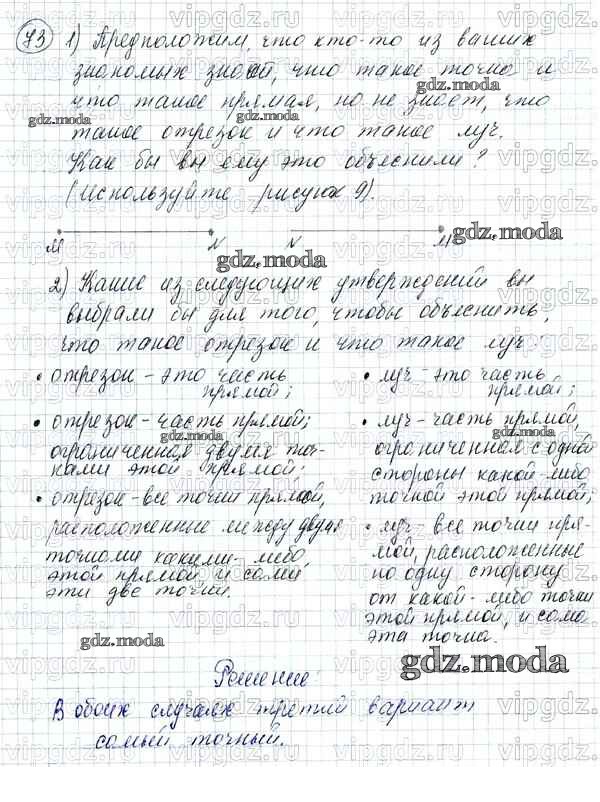 73 1) Предположим, что кто-то из ваших
знакомых знает, что такое точка и
что такое прямая, но не знает, что
такое отрезок и что такое луч.
Как бы вы ему это объяснили?
(Используйте рисунок 9).
M N N M
2) Какие из следующих утверждений вы
выбрали бы для того, чтобы объяснить,
что такое отрезок и что такое луч.
• отрезок - это часть
прямой;
• отрезок - часть прямой;
ограниченная двумя точ-
ками этой прямой;
• отрезок - все точки прямой,
расположенные между двумя
точками какими-либо
этой прямой и сами
эти две точки.
• луч - это часть
прямой;
• луч - часть прямой,
ограниченная с одной
стороны какой-либо
точкой этой прямой;
• луч - все точки пря-
мой, расположенные
по одну сторону
от какой-либо точки
этой прямой, и сама
эта точка.
Решение:
В обоих случаях третий вариант
самый точный.
gdz.moda
vipgdz.